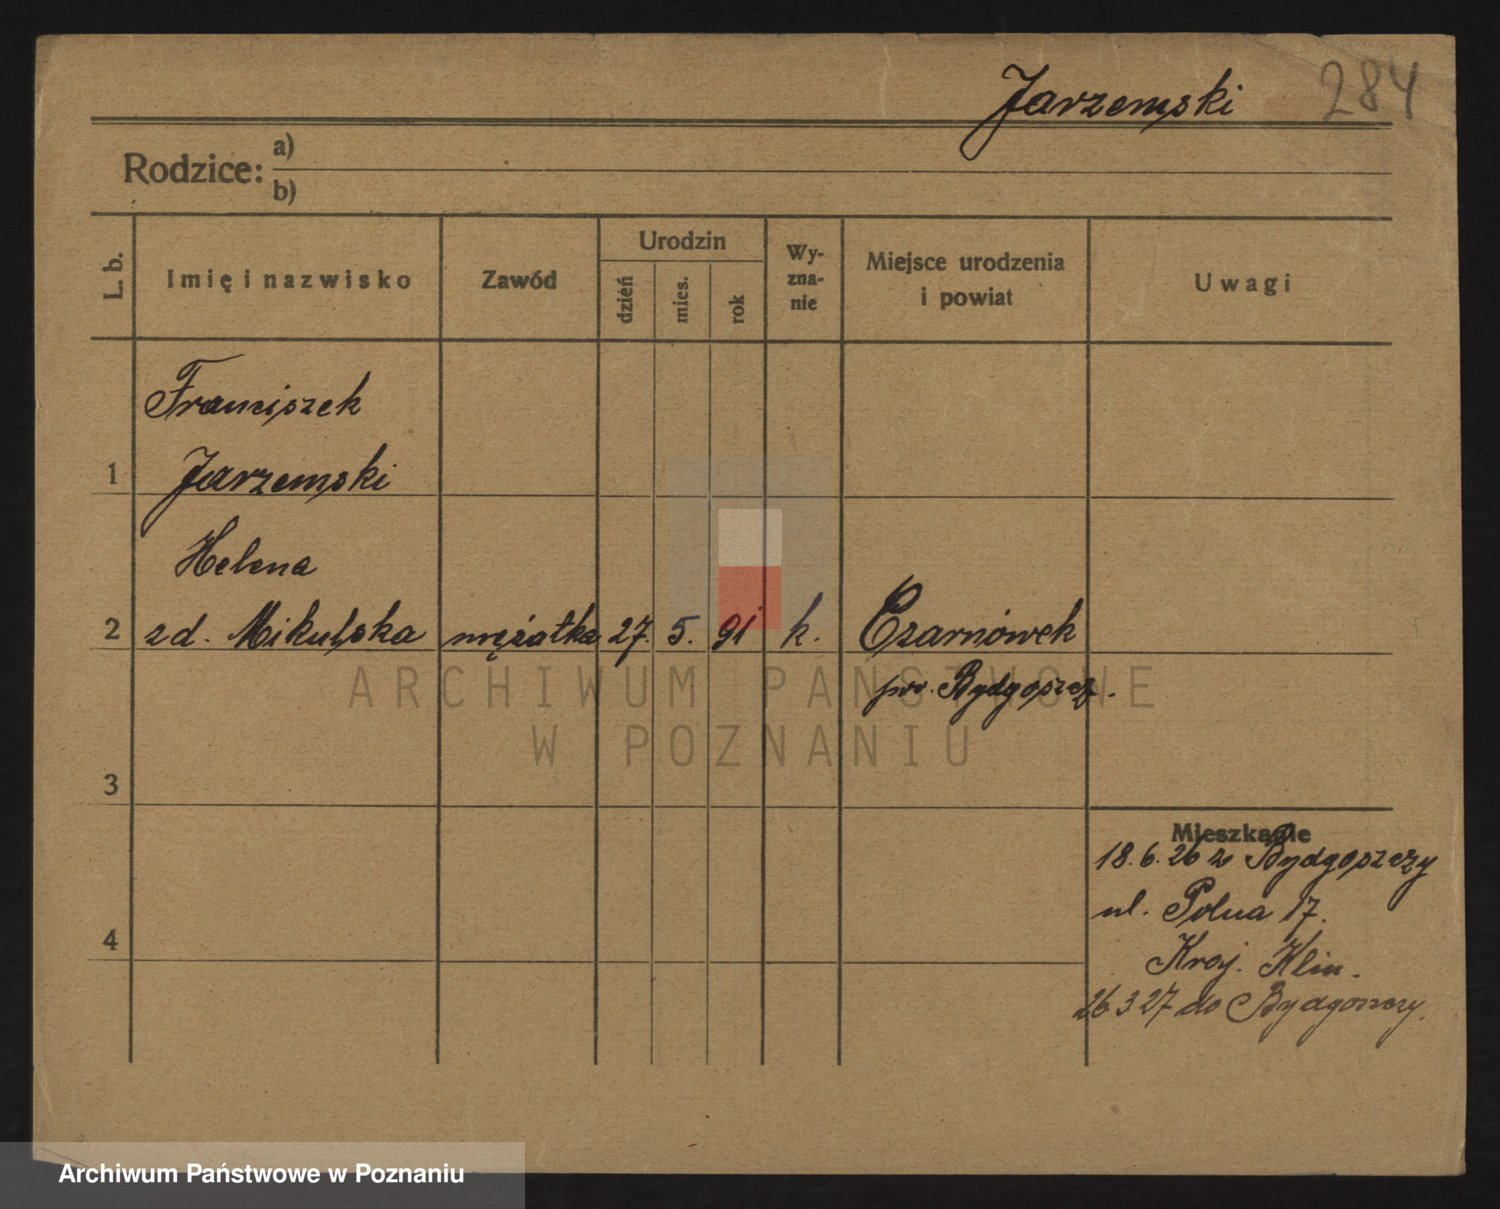 Jarzemski
284
Rodzice: a)
b)
L. b.
Imię i nazwisko
Zawód
Urodzin
dzień
mies.
rok
Wy-
zna-
nie
Miejsce urodzenia
i powiat
Uwagi
Franciszek
1 Jarzemski
Helena
2 zd. Mikulska mężatka 27. 5. 91 k. Czarnówek
pow. Bydgoszcz.
ARCHIWUM PAŃSTWOWE
W POZNANIU
3
Mieszkanie
18.6.26 z Bydgoszczy
ul. Polna 17.
4
Kraj. Klin.
26 3 27 do Bydgoszczy.
Archiwum Państwowe w Poznaniu